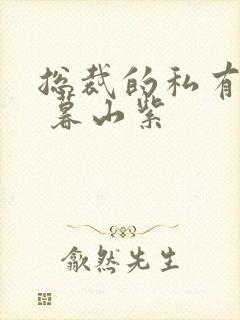 总裁的私有
暮山紫
歙然先生